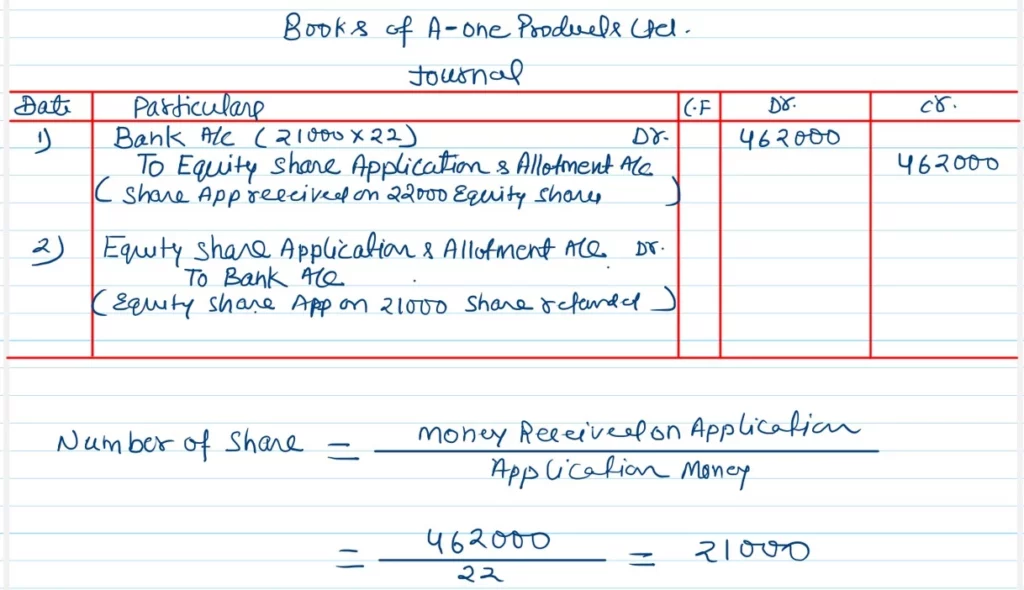 Books of A-one Products Ltd.
Journal
Date Particulars L.F Dr. Cr.
1) Bank A/c (21000 x 22) Dr. 462000
To Equity Share Application & Allotment A/c 462000
( Share App received on 22000 Equity shares )
2) Equity share Application & Allotment A/c Dr.
To Bank A/c
( Equity share App on 21000 Share refunded )
Number of Share = Money Received on Application
Application Money
= 462000 = 21000
22